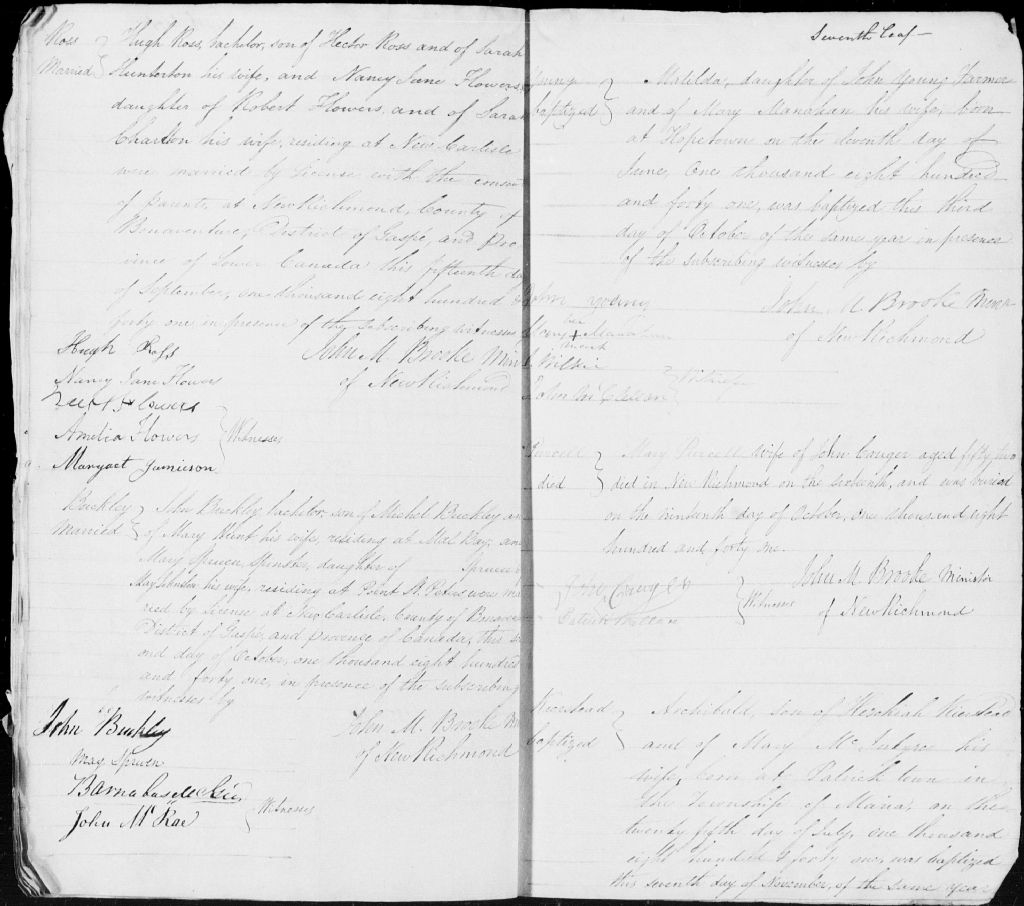 Ross
Married
Hugh Ross, bachelor, son of Hector Ross and of Sarah
Hunterton his wife, and Nancy Jane Flowers,
daughter of Robert Flowers and of Sarah
Charlton his wife, residing at New Carlisle
were married by License with the consent
of parents, at New Richmond, County of
Bonaventure, District of Gaspé, and Pro-
vience of Lower Canada this fifteenth day
of September, one thousand eight hundred &
forty one, in presence of the subscribing witnesses
John M Brooke Min
of New Richmond
Hugh Ross
Nancy Jane Flowers
Flowers
Amelia Flowers
Margaet Jamieson
Witnesses
Buckley
Married
John Buckley, bachelor, son of Michel Buckley an
of Mary Hunt his wife, residing at Mill Bay, and
Mary Spruen, Spinster, daughter of Spruen
May Johnston, his wife, residing at Point St. Peter were mar
ried by License at New Carlisle, County of Bonaven
District of Gaspé, and provence of Canada, this se
ond day of October, one thousand eight hundred
and forty one, in presence of the subscribing
witnesses by
John M. Brooke M
of New Richmond
John Buckley
May Spruen
Barnabas
John Mc Rae
Witnesses
Seventh leaf
Young
baptized
Matilda, daughter of John Young Farmer
and of Mary Manahan his wife, born
at Hopetown on the seventh day of
June, One thousand eight hundred
and forty one, was baptized this third
day of October of the same year in presence
of the subscribing witnesses by
John M Brooke Minis
of New Richmond
John Young
her
Mary + Manahan
mark
Wilkie
John McClellan
Witnesses
Purcell
died
Mary Purcell wife of John Cauger aged fifty two
died in New Richmond on the sixteenth, and was buried
on the nineteenth day of October, one thousand eight
hundred and forty one.
John M Brooke Minister
of New Richmond
John Cauger
Patrick
Witnesses
Kierstead
baptized
Archibald, son of Hezekiah Kierstead
and of Mary McIntyre his
wife, born at Patrick town in
the Township of Maria, on the
twenty fifth day of July, one thousand
eight hundred & forty one, was baptized
this seventh day of November, of the same year